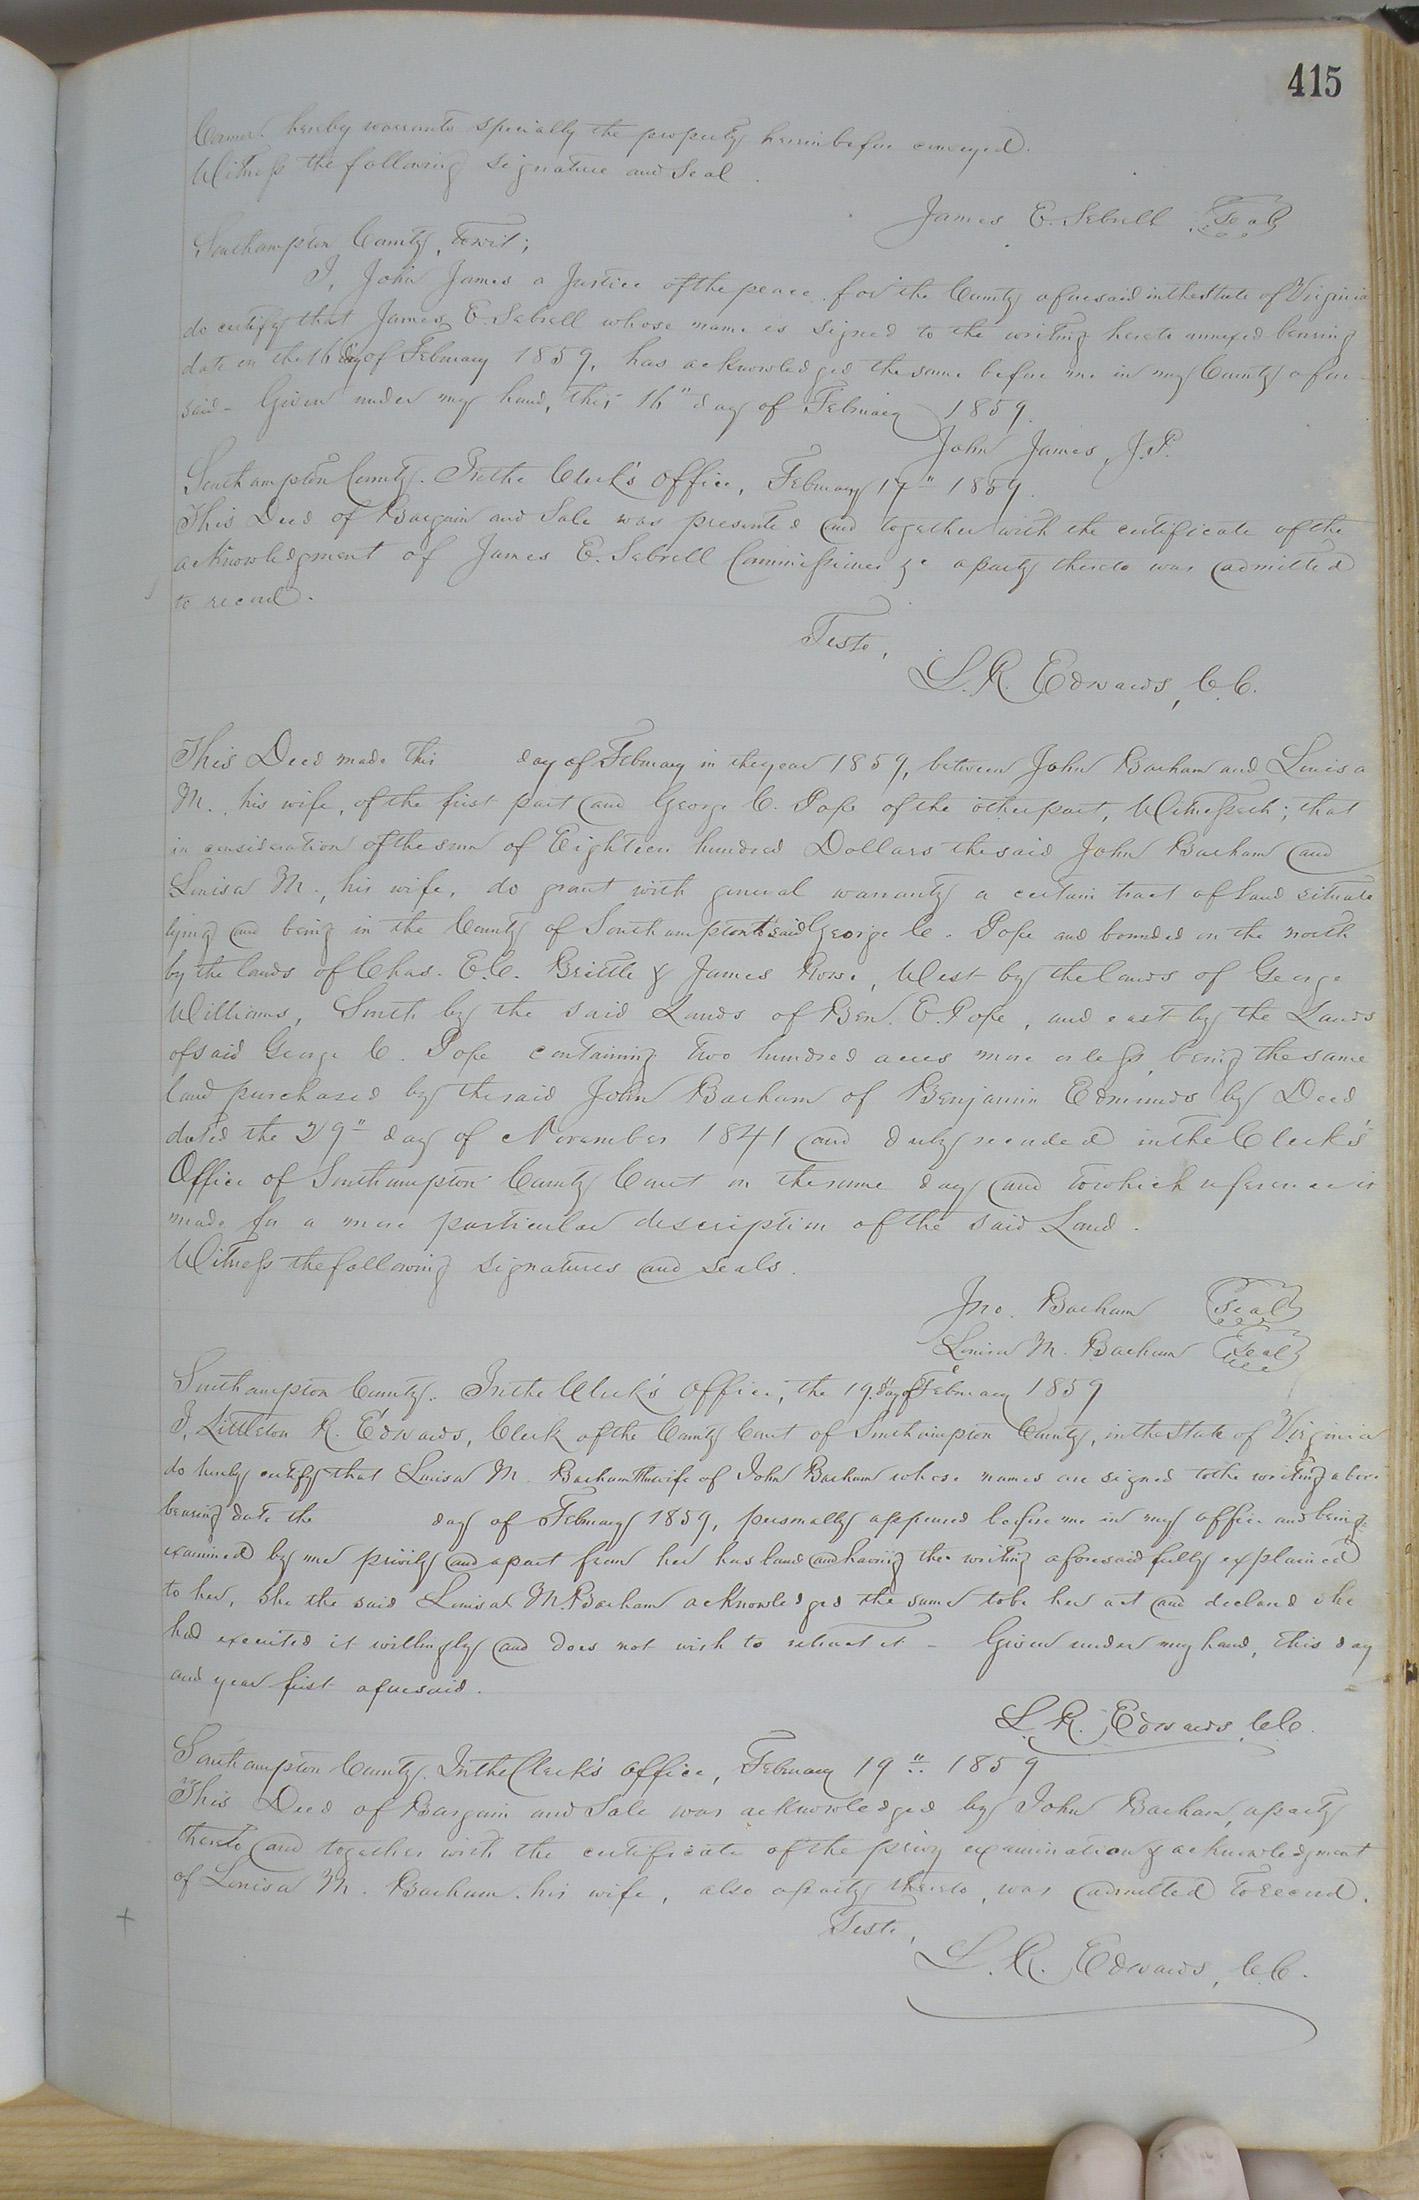 415
Comr. hereby warrants specially the property hereinbefore conveyed.
Witness the following signature and seal.
James E. Sebrell Seal
Southampton County, towit;
I, John James a Justice of the peace for the County aforesaid in the State of Virginia
do certify that James E. Sebrell whose name is signed to the writing hereto annexed bearing
date on the 16 day of February 1859, has acknowledged the same before me in my County afore-
said - Given under my hand, this 16" day of February 1859.
John James, J.P.
Southampton County. In the Clerk's Office, February 17" 1859.
This Deed of Bargain and Sale was presented and together with the certificate of the
acknowledgment of James E. Sebrell Commissioner &c a party thereto was admitted
to record.
Teste,
L. R. Edwards, C.C.
This Deed made this day of February in the year 1859, between John Barham and Louisa
M. his wife, of the first part and George C. Pope of the other part, Witnesseth; that
in consideration of the sum of Eighteen hundred Dollars the said John Barham and
Louisa M., his wife, do grant with general warranty a certain tract of land situate
lying and being in the County of Southampton to said George C. Pope and bounded on the north
by the lands of Chas. E.C. Brittle & James Rowe, West by the lands of George
Williams, South by the said Lands of Ben. E. Pope, and east by the Lands
of said George C. Pope containing two hundred acres more or less, being the same
land purchased by the said John Barham of Benjamin Edmunds by Deed
dated the 29" day of November 1841 and duly recorded in the Clerk's
Office of Southampton County Court on the same day and to which reference is
made for a more particular description of the said Land.
Witness the following signatures and seals.
Jno. Barham Seal
Louisa M. Barham Seal
Southampton County. In the Clerk's Office, the 19" day of February 1859
I, Littleton R. Edwards, Clerk of the County Court of Southampton County, in the State of Virginia
do hereby certify that Louisa M. Barham the wife of John Barham whose names are signed to the writing above
bearing date the day of February 1859, personally appeared before me in my office and being
examined by me privily and apart from her husband and having the writing aforesaid fully explained
to her, she the said Louisa M. Barham acknowledged the same to be her act and declared she
had executed it willingly and does not wish to retract it - Given under my hand, this day
and year first aforesaid.
L. R. Edwards, C.C.
Southampton County. In the Clerk's Office, February 19" 1859
This Deed of Bargain and Sale was acknowledged by John Barham, a party
thereto and together with the certificate of the privy examination & acknowledgment
of Louisa M. Barham his wife, also a party thereto, was admitted to record.
Teste,
L. R. Edwards, C.C.